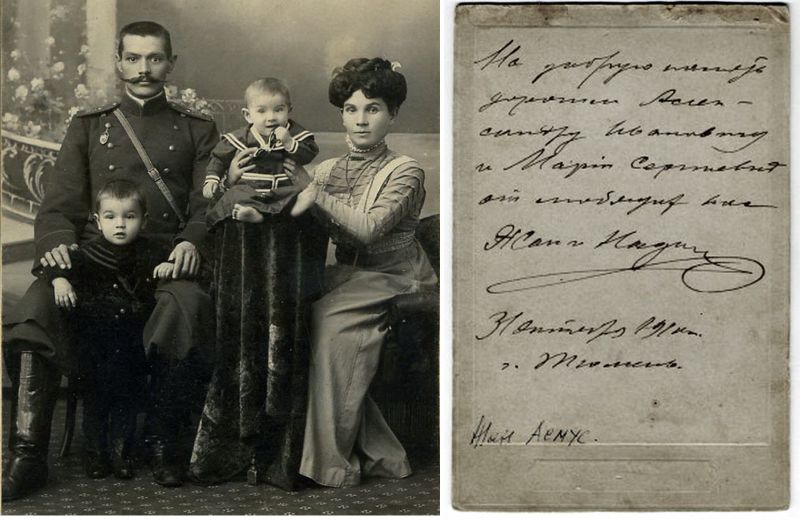 На добрую память
дорогим Алек-
сандру Ивановичу
и Маріи Сергеевне
от любящих вас
Жан и Нади
3 Октября 191
г. Тюмень.
Жан Асмус.